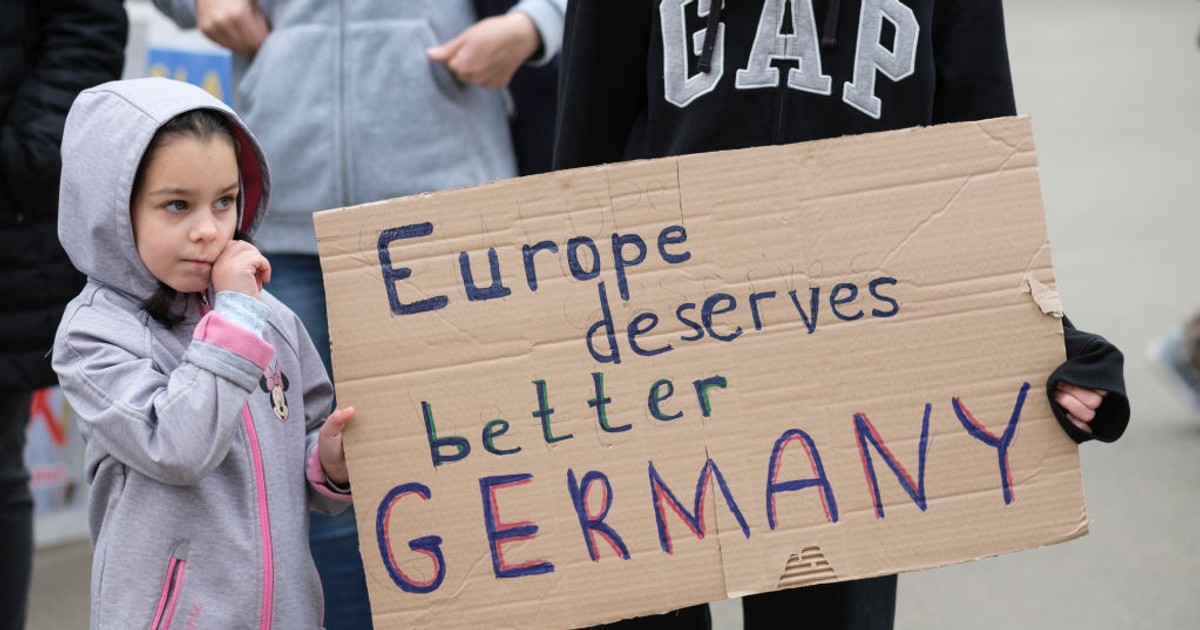 GAP
Europe
deserves
better
GERMANY